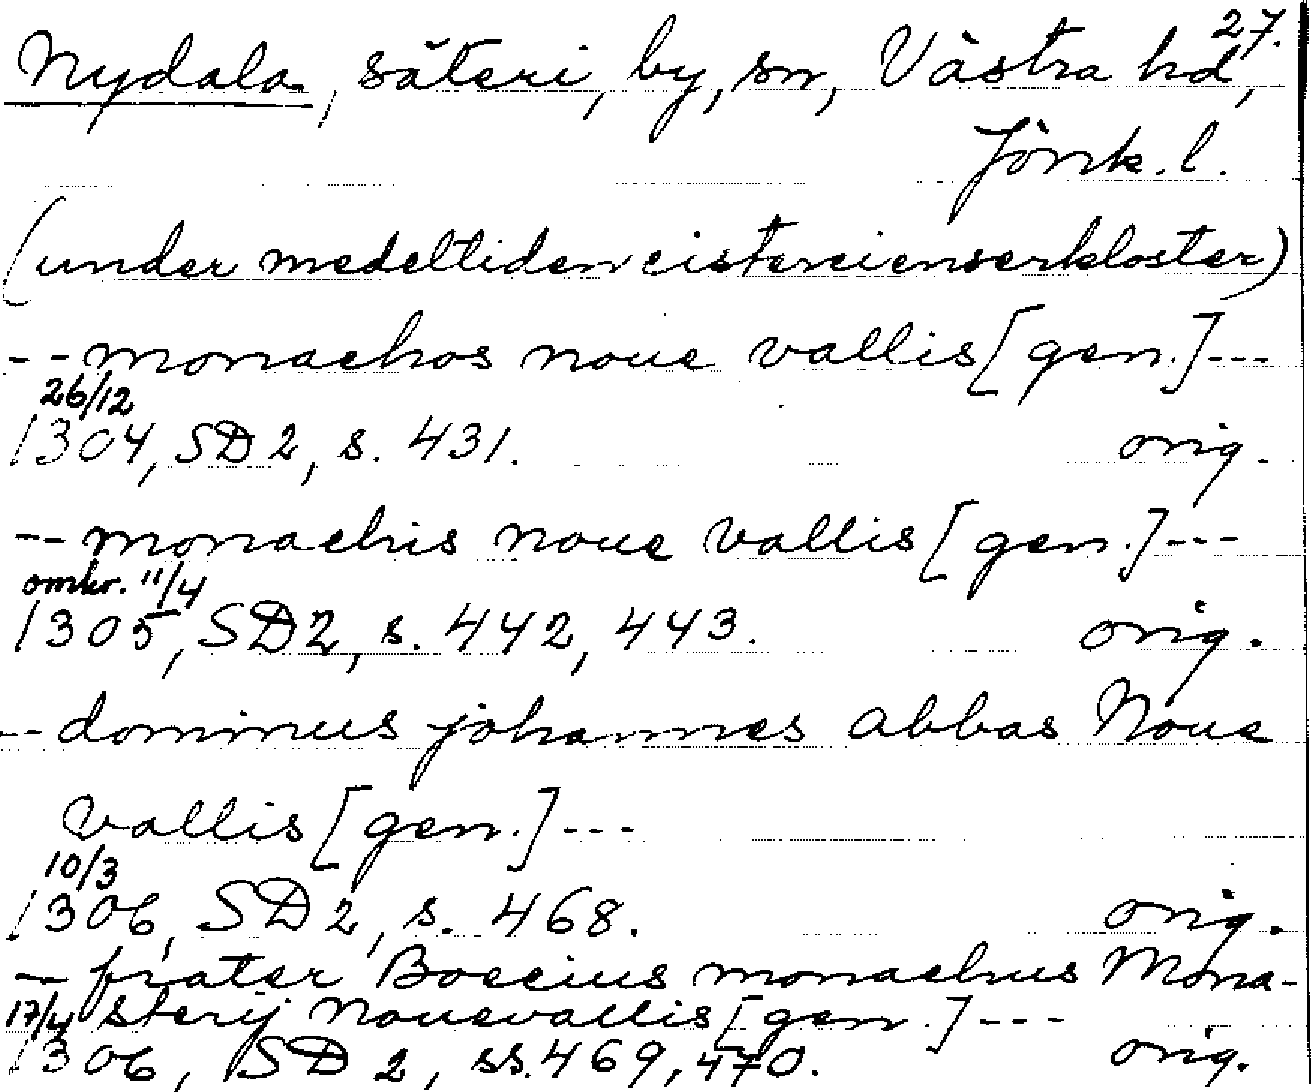 27.
Nydala, säteri, by, sn, Västra hd,
Jönk. l.
(under medeltiden cistercienserkloster)
-- monachos noue vallis [gen.] ---
26/12
1304, SD 2, s. 431. orig.
-- monachis noue vallis [gen.] ---
omkr. 11/4
1305, SD 2, s. 442, 443. orig.
-- dominus johannes abbas Noue
vallis [gen.] ---
10/3
1306, SD 2, s. 468. orig.
-- frater Boecius monachus Mona-
sterij Nouevallis [gen.] ---
17/4
1306, SD 2, ss. 469, 470. orig.